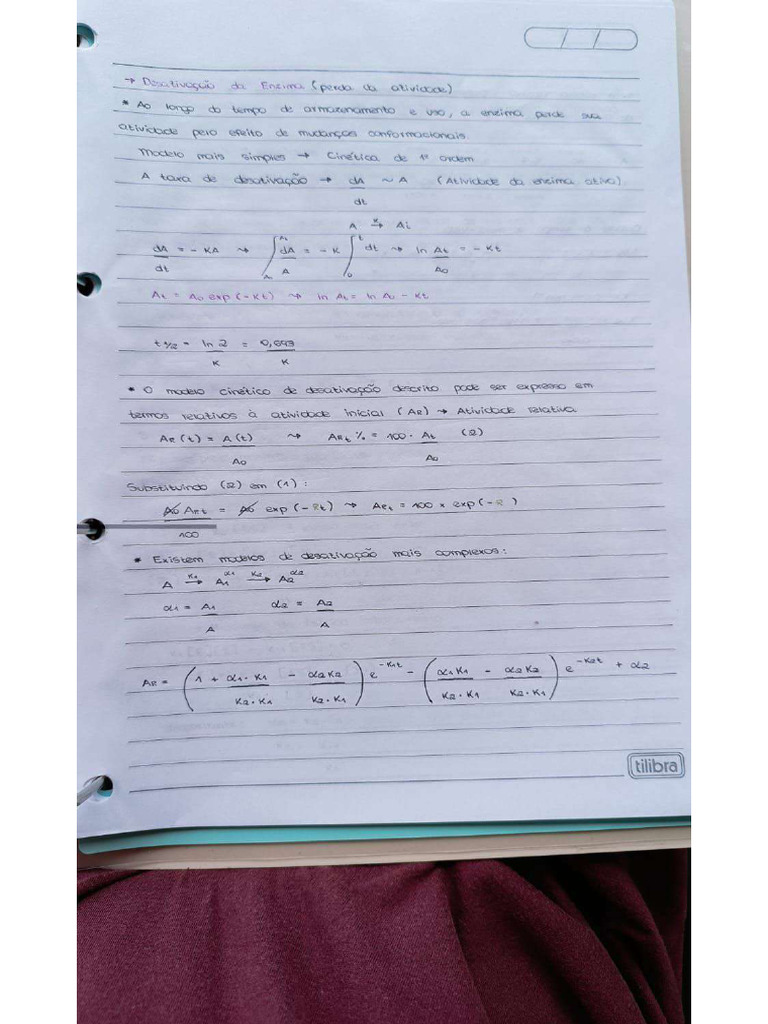 / /
→ Desativação da Enzima (perda da atividade)
* Ao longo do tempo de armazenamento e uso, a enzima perde sua
atividade pelo efeito de mudanças conformacionais.
Modelo mais simples → Cinética de 1ª ordem
A taxa de desativação → dA/dt ~ A (Atividade da enzima ativa)
A —K→ Ai
dA/dt = - KA ⇝ ∫A₀^At dA/A = - K ∫0^t dt ⇝ ln At/A₀ = - Kt
At = A₀ exp (- Kt) ⇝ ln At = ln A₀ - Kt
t 1/2 = ln 2/K = 0,693/K
• O modelo cinético de desativação descrito pode ser expresso em
termos relativos à atividade inicial (AR) → Atividade relativa
AR (t) = A(t)/A₀ ⇝ ARt % = 100 · At/A₀ (2)
Substituindo (2) em (1) :
A₀ ARt/100 = A₀ exp (- Rt) ⇝ ARt = 100 x exp (- R )
• Existem modelos de desativação mais complexos:
A —K1→ A1^α1 —K2→ A2^α2
α1 = A1/A α2 = A2/A
AR = (1 + α1 · K1/K2 · K1 - α2K2/K2 · K1) e^-K1t - (α1K1/K2 · K1 - α2K2/K2 · K1) e^-K2t + α2
tilibra